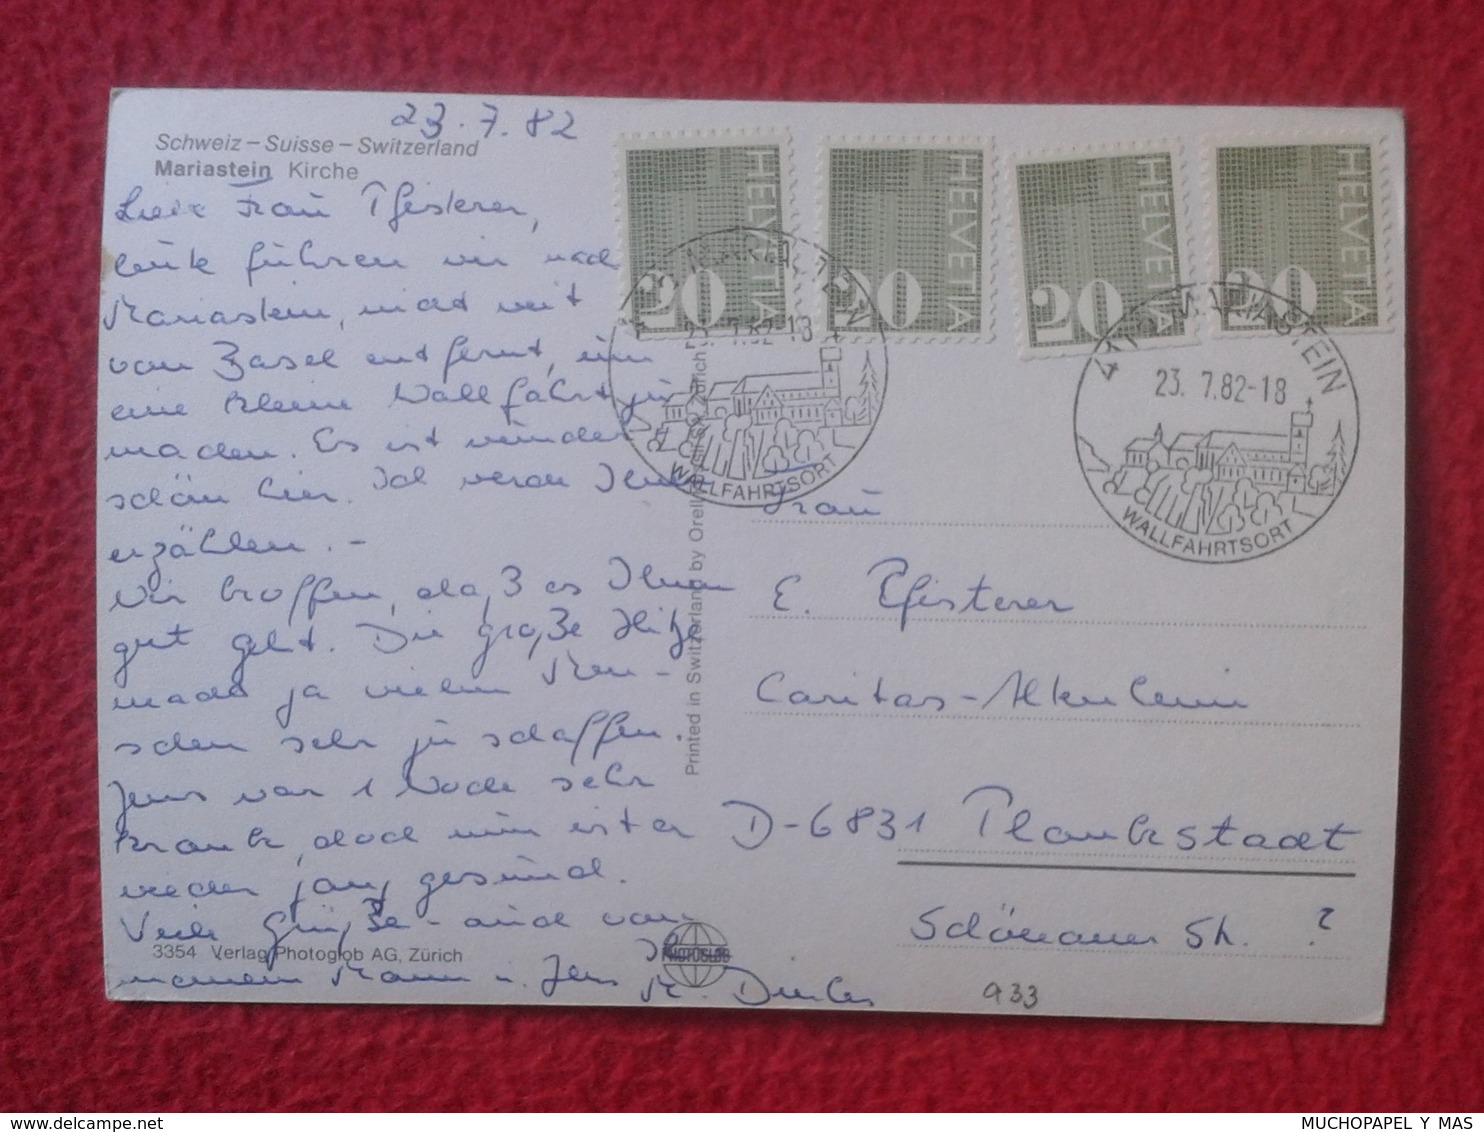 23.7.82
Schweiz – Suisse – Switzerland
Mariastein Kirche
Liebe Frau Pfisterer,
heute führen wir nach
Mariastein, nicht weit
von Basel entfernt, um
eine kleine Wallfahrt zu
machen. Es ist wunder-
schön hier. Ich werde Ihnen
erzählen. –
Wir hoffen, daß es Ihnen
gut geht. Die große Hitze
macht ja vielen Men-
schen sehr zu schaffen.
Jens war 1 Woche sehr
krank, doch nun ist er
wieder ganz gesund.
Viele Grüße – auch von
meinem Mann u. Jens Ihre
M.
3354 Verlag Photoglob AG, Zürich
PHOTOGLOB
Printed in Switzerland by Orell Zürich
HELVETIA
20
HELVETIA
20
HELVETIA
20
HELVETIA
20
MARIASTEIN
23. 7.82-18
WALLFAHRTSORT
MARIASTEIN
23. 7.82-18
WALLFAHRTSORT
Frau
E. Pfisterer
Caritas-Altenheim
D-6831 Plankstadt
Schönauer Str. ?
933
delcampe.net
MUCHOPAPEL Y MAS